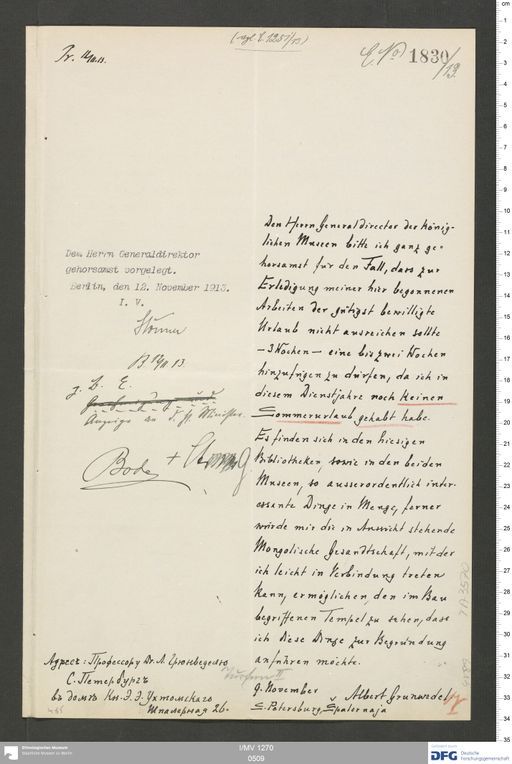 (vgl. E. 1251/13)
Pr. 12/11.13.
E. No 1830/13.
Dem Herrn Generaldirektor
gehorsamst vorgelegt.
Berlin, den 12. November 1913.
I. V.
B 12/11 13
z. d. E.
Bode
Den Herrn Generaldirector der könig-
lichen Museen bitte ich ganz ge-
horsamst für den Fall, dass zur
Erledigung meiner hier begonnenen
Arbeiten der gütigst bewilligte
Urlaub nicht ausreichen sollte
— 3 Wochen — eine bis zwei Wochen
hinzufügen zu dürfen, da ich in
diesem Dienstjahre noch keinen
Sommerurlaub gehabt habe.
Es finden sich in den hiesigen
Bibliotheken, sowie in den beiden
Museen, so ausserordentlich inter-
essante Dinge in Menge, ferner
würde mir die in Aussicht stehende
Mongolische Gesandtschaft, mit der
ich leicht in Verbindung treten
kann, ermöglichen, den im Bau
begriffenen Tempel zu sehen, dass
ich diese Dinge zur Begründung
anführen möchte.
9. November Albert Grünwedel
S. Petersburg, Špalernaja
Адресъ: Профессору Dr. А. Грюнведелю
С. Петербургъ
въ домѣ Кн. Э. Э. Ухтомскаго
Шпалерная 26.
I/MV 1270
0509
Ethnologisches Museum
Staatliche Museen zu Berlin
gefördert durch
DFG Deutsche
Forschungsgemeinschaft